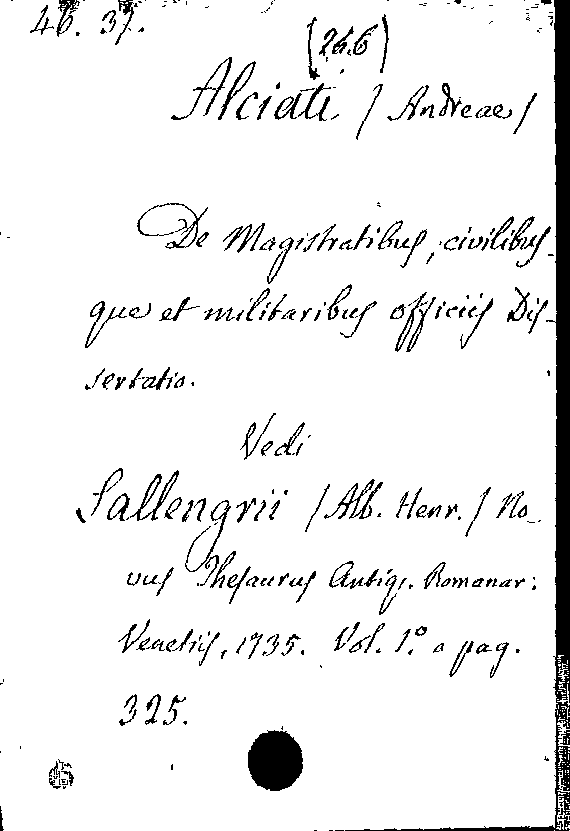 46. 37.
(266)
Alciati / Andreae /
De Magistratibus, civilibus-
que et militaribus officiis Dis-
sertatio.
Vedi
Sallengrii / Alb. Henr. / No-
vus Thesaurus Antiq. Romanar:
Venetiis, 1735. Vol. 1.º a pag.
325.